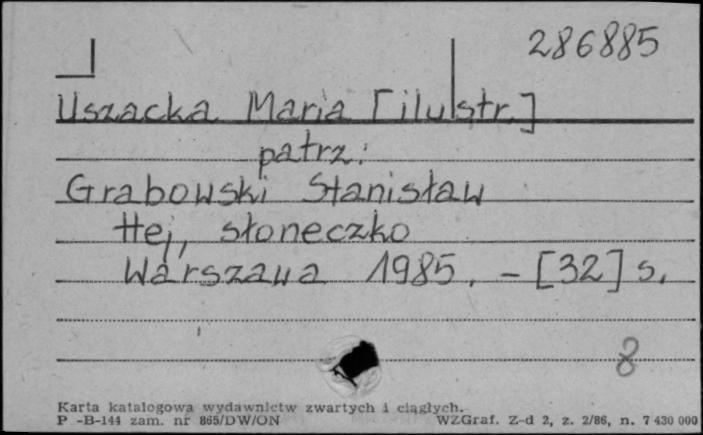 286885
Uszacka Maria [ilustr.]
patrz:
Grabowski Stanisław
Hej, słoneczko
Warszawa 1985. - [32] s.
8
Karta katalogowa wydawnictw zwartych i ciągłych.
P -B-144 zam. nr 865/DW/ON WZGraf. Z-d 2, z. 2/86, n. 7 430 000